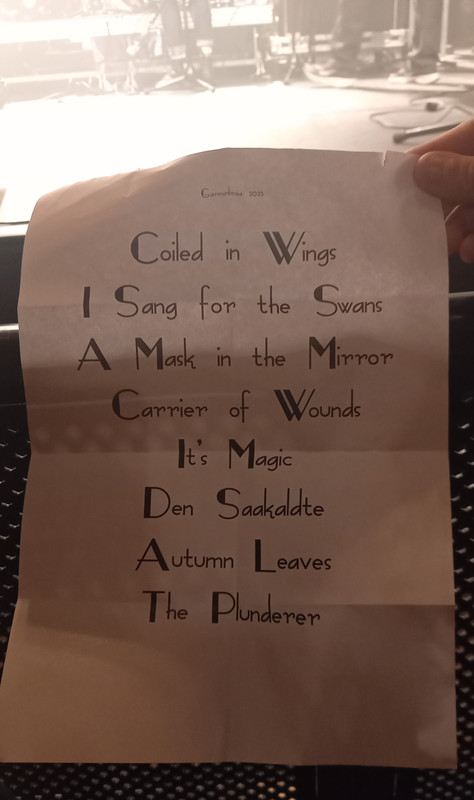 2023
Coiled in Wings
I Sang for the Swans
A Mask in the Mirror
Carrier of Wounds
It's Magic
Den Saakaldte
Autumn Leaves
The Plunderer